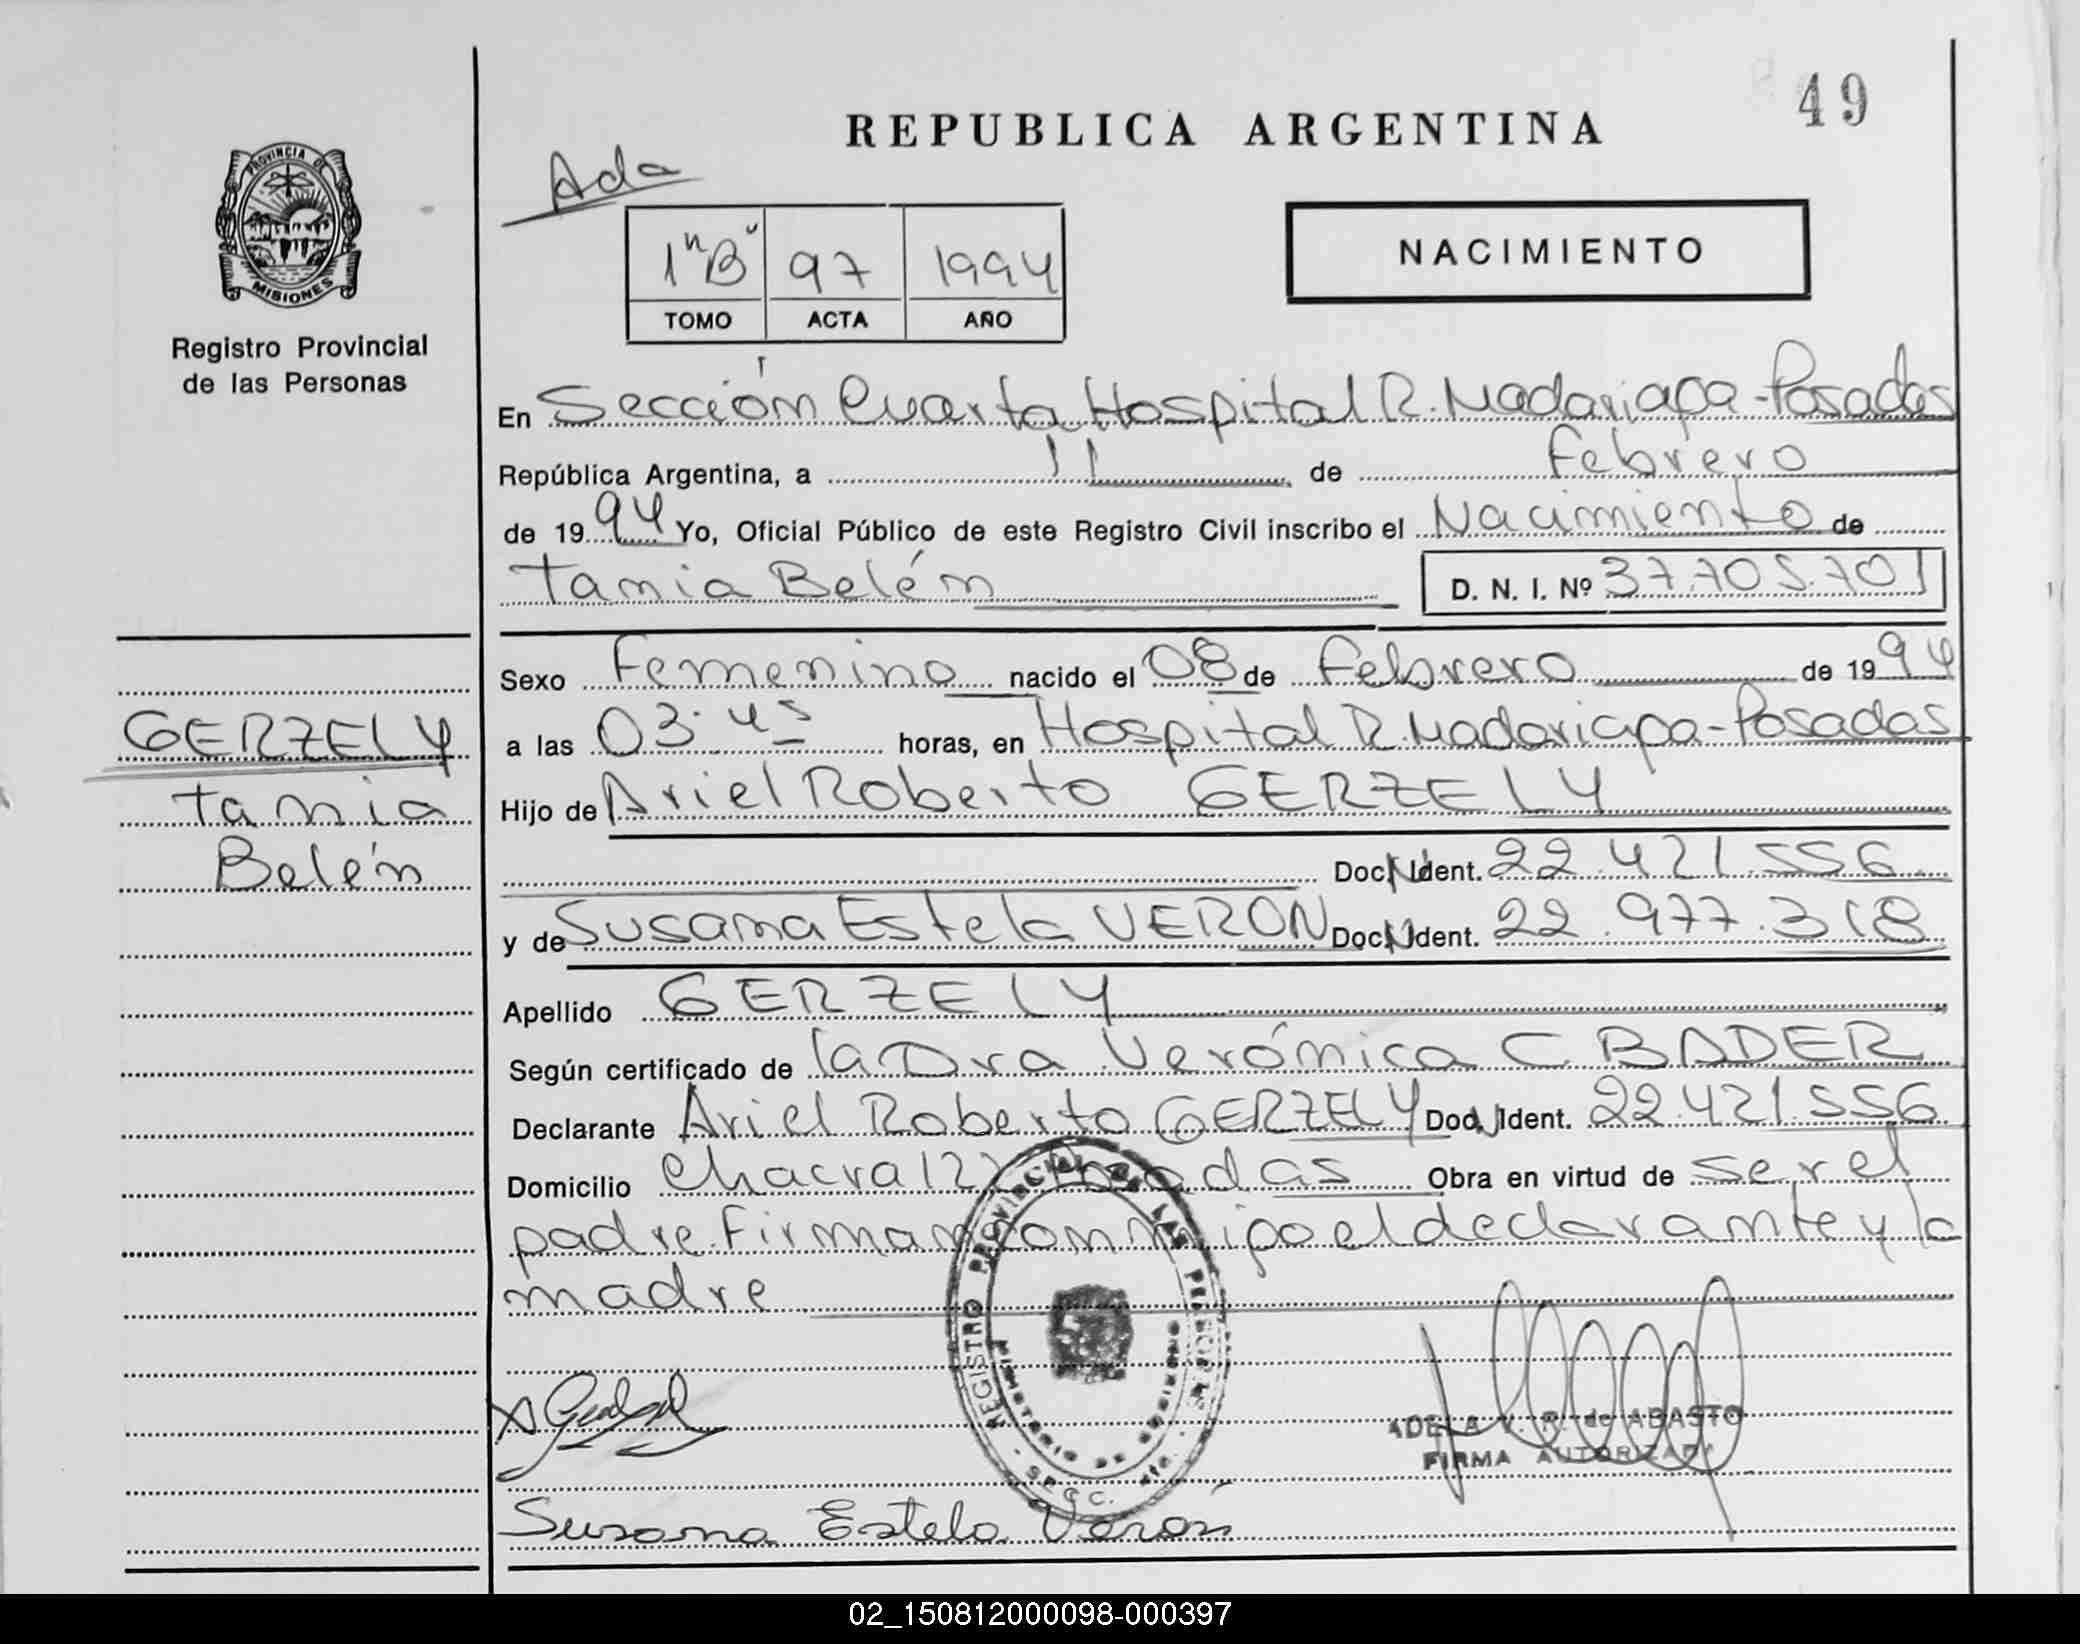 49
REPUBLICA ARGENTINA
Ada
PROVINCIA DE
MISIONES
1"B" 97 1994
TOMO ACTA AÑO
NACIMIENTO
Registro Provincial
de las Personas
En Sección Cuarta Hospital R. Madariaga-Posadas
República Argentina, a 11 de Febrero
de 1994 Yo, Oficial Público de este Registro Civil inscribo el Nacimiento de
Tania Belén D. N. I. Nº 37.705.701
Sexo Femenino nacido el 08 de Febrero de 1994
GERZELY
Tania
Belén
a las 03:45 horas, en Hospital R. Madariaga-Posadas
Hijo de Ariel Roberto GERZELY
Doc. Ident. 22.421.556
y de Susana Estela VERON Doc. Ident. 22.977.318
Apellido GERZELY
Según certificado de la Dra Verónica C BADER
Declarante Ariel Roberto GERZELY Doc. Ident. 22.421.556
Domicilio Chacra 122 Posadas Obra en virtud de ser el
padre Firman conmigo el declarante y la
madre
REGISTRO PROVINCIAL DE LAS PERSONAS
MINISTERIO DE GOBIERNO
ADELA V. R. de ABASTO
FIRMA AUTORIZADA
Susana Estela Verón
02_150812000098-000397